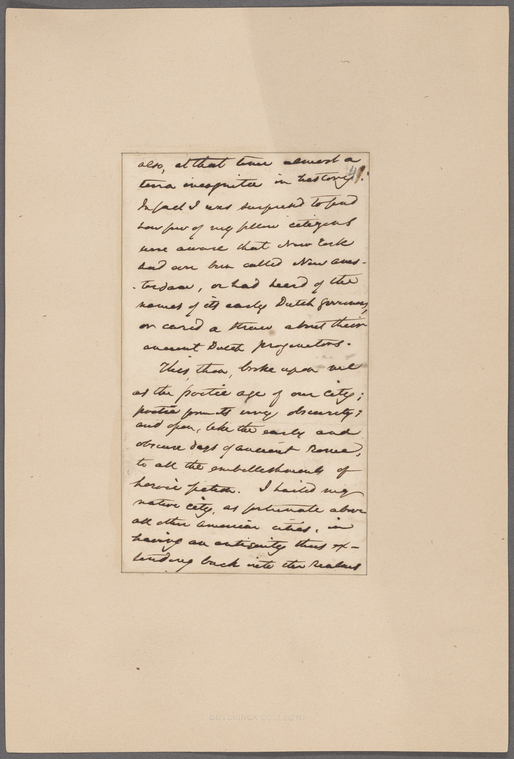 also, at that time almost a
terra incognita in history.
In fact I was surprised to find
how few of my fellow citizens
were aware that New York
had ever been called New Ams-
-terdam, or had heard of the
names of its early Dutch Governors,
or cared a straw about their
ancient Dutch progenitors.
This, then, broke upon me
as the poetic age of our city;
poetic from its very obscurity;
and open, like the early and
obscure days of ancient Rome,
to all the embellishments of
heroic fiction. I hailed my
native city, as fortunate above
all other American cities, in
having an antiquity thus ex-
tending back into the realms